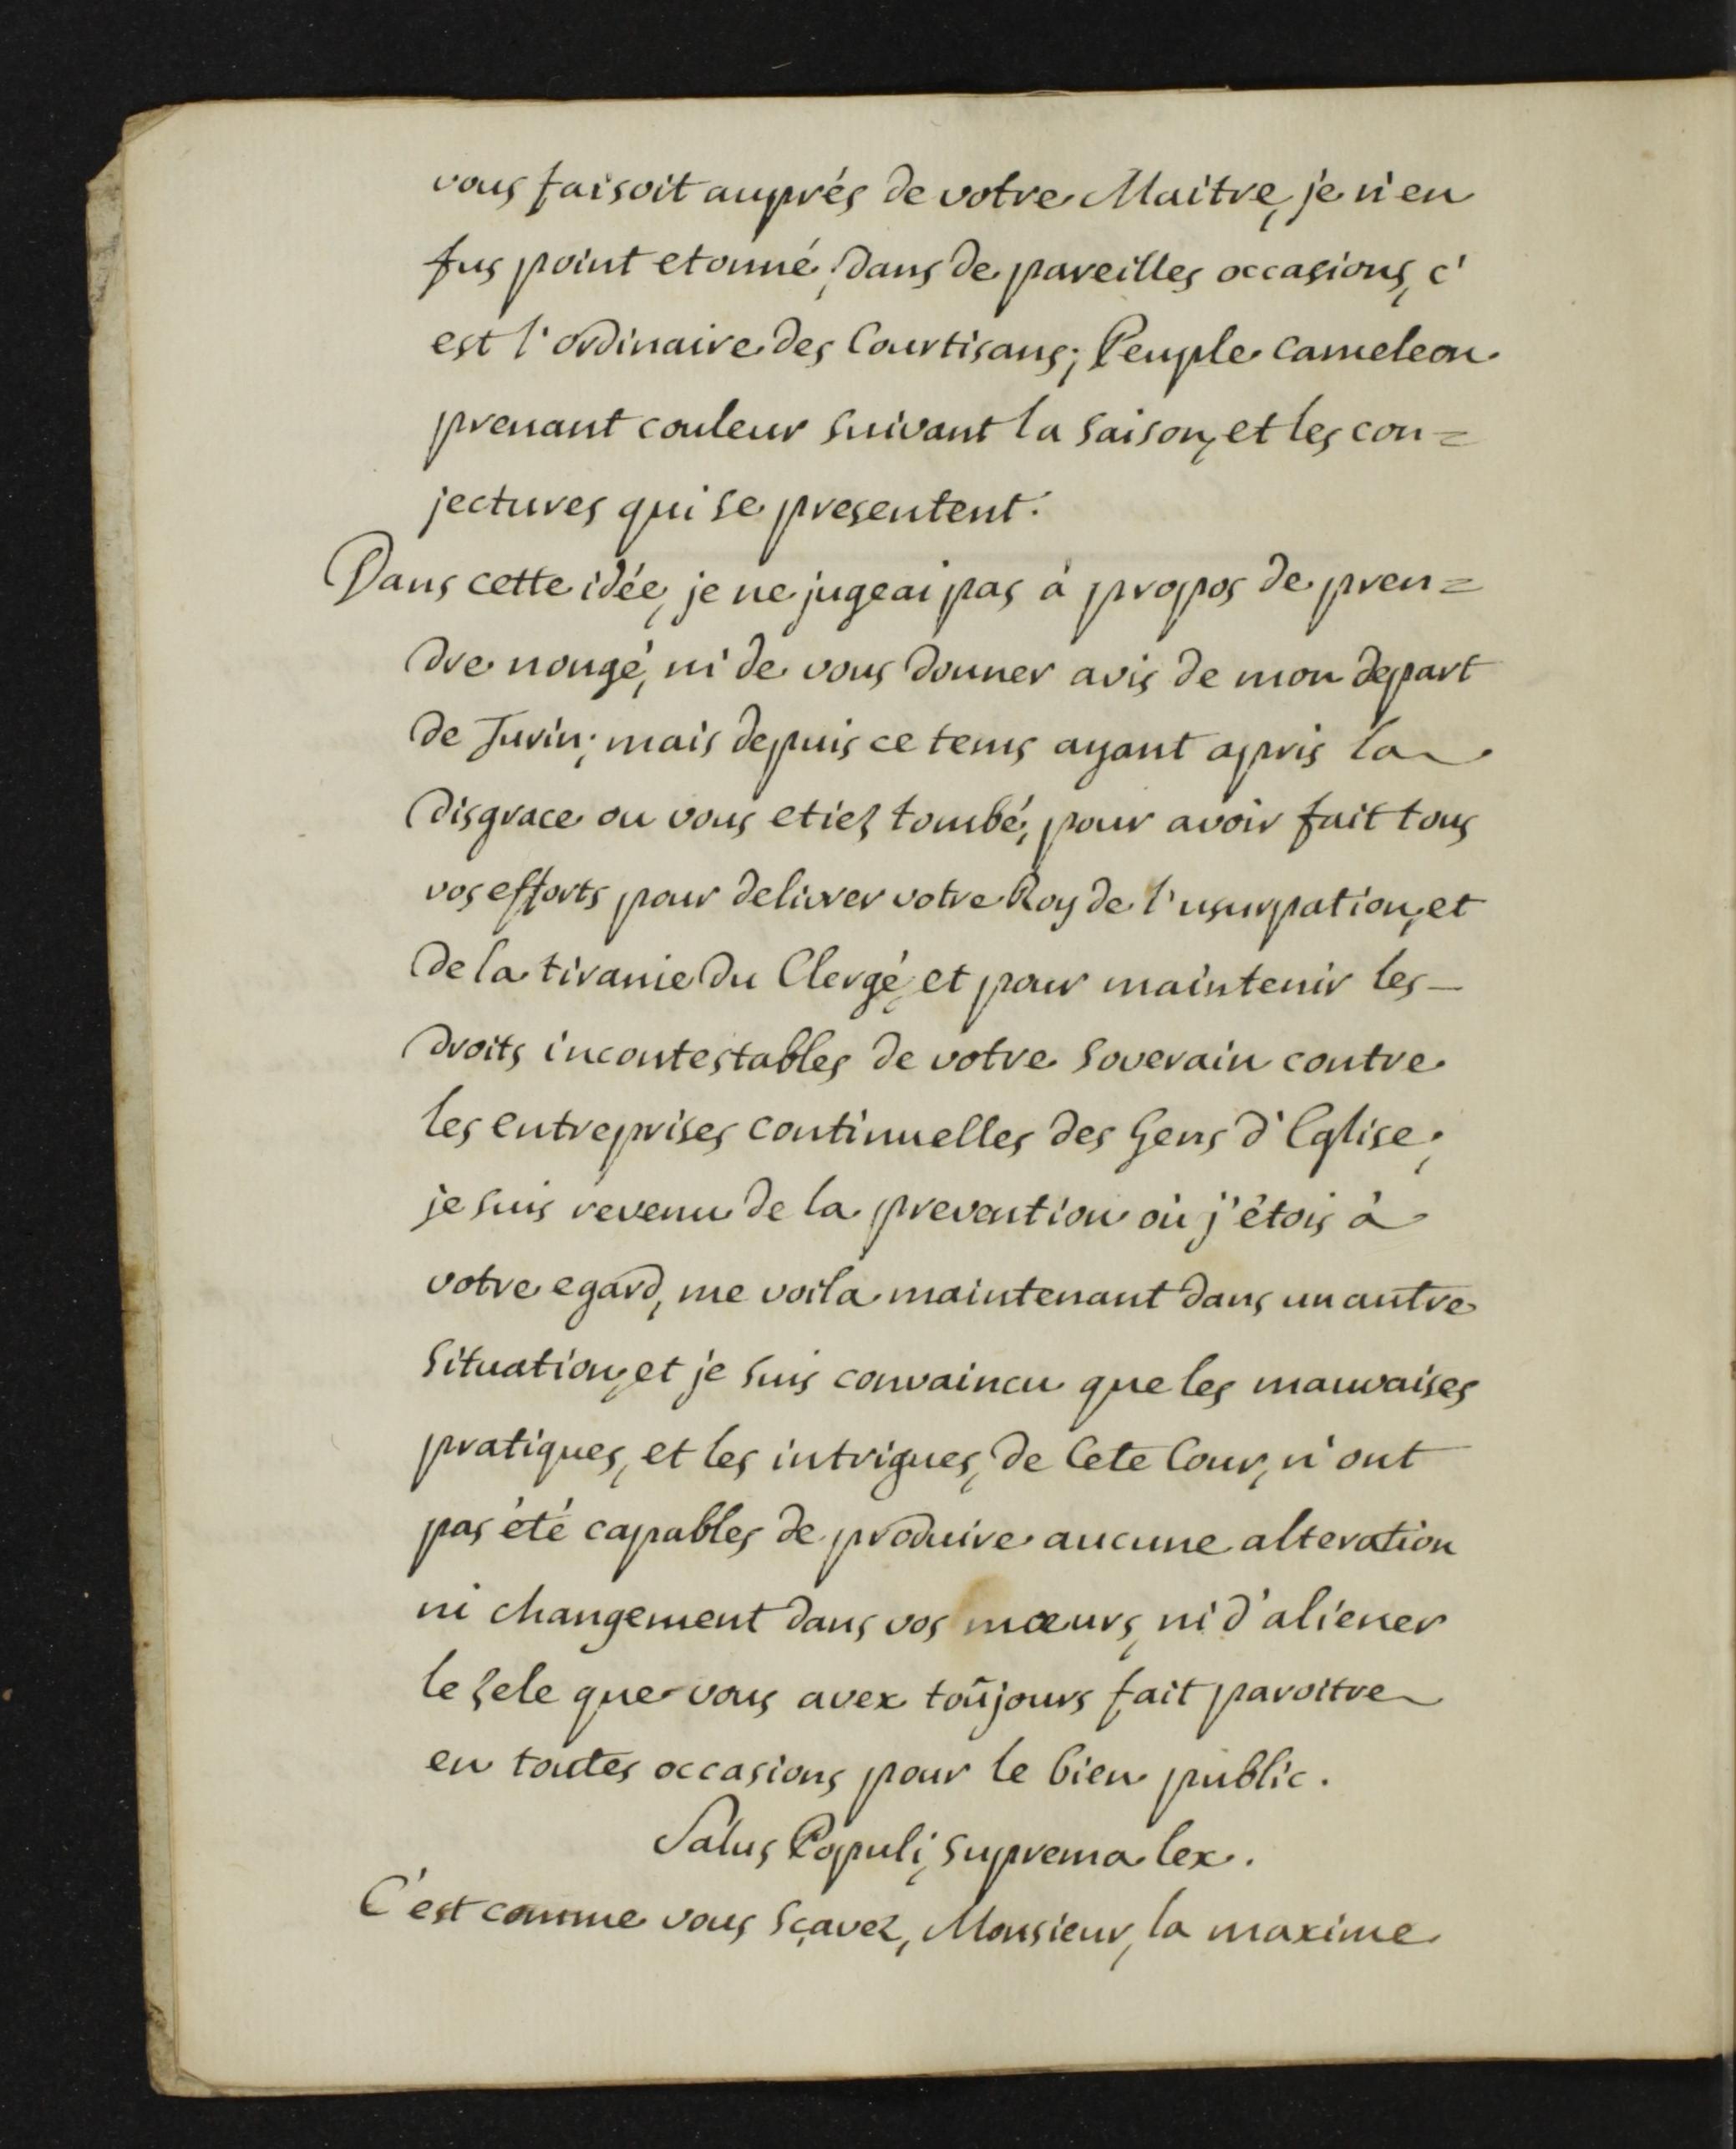 vous faisoit auprés de votre Maitre, je n'en
fus point etonné; dans de pareilles occasions, c'
est l'ordinaire des Courtisans; Peuple cameleon
prenant couleur suivant la saison, et les con=
jectures qui se presentent.
Dans cette idée, je ne jugeai pas à propos de pren=
dre nongé, ni de vous donner avis de mon depart
de Turin; mais depuis ce tems ayant apris la
disgrace ou vous etiez tombé, pour avoir fait tous
vos efforts pour delivrer votre Roy de l'usurpation, et
de la tiranie du Clergé, et pour maintenir les
droits incontestables de votre soverain contre
les entreprises continuelles des Gens d'Eglise;
je suis revenu de la prevention où j'étois à
votre egard, me voila maintenant dans un autre
situation, et je suis convaincu que les mauvaises
pratiques, et les intrigues, de Cete Cour, n'ont
pas été capables de produire aucune alteration
ni changement dans vos mœurs, ni d'aliener
le zele que vous avex toûjours fait paroitre
en toutes occasions pour le bien public.
Salus Populi, suprema lex.
C'est comme vous sçavez, Monsieur, la maxime